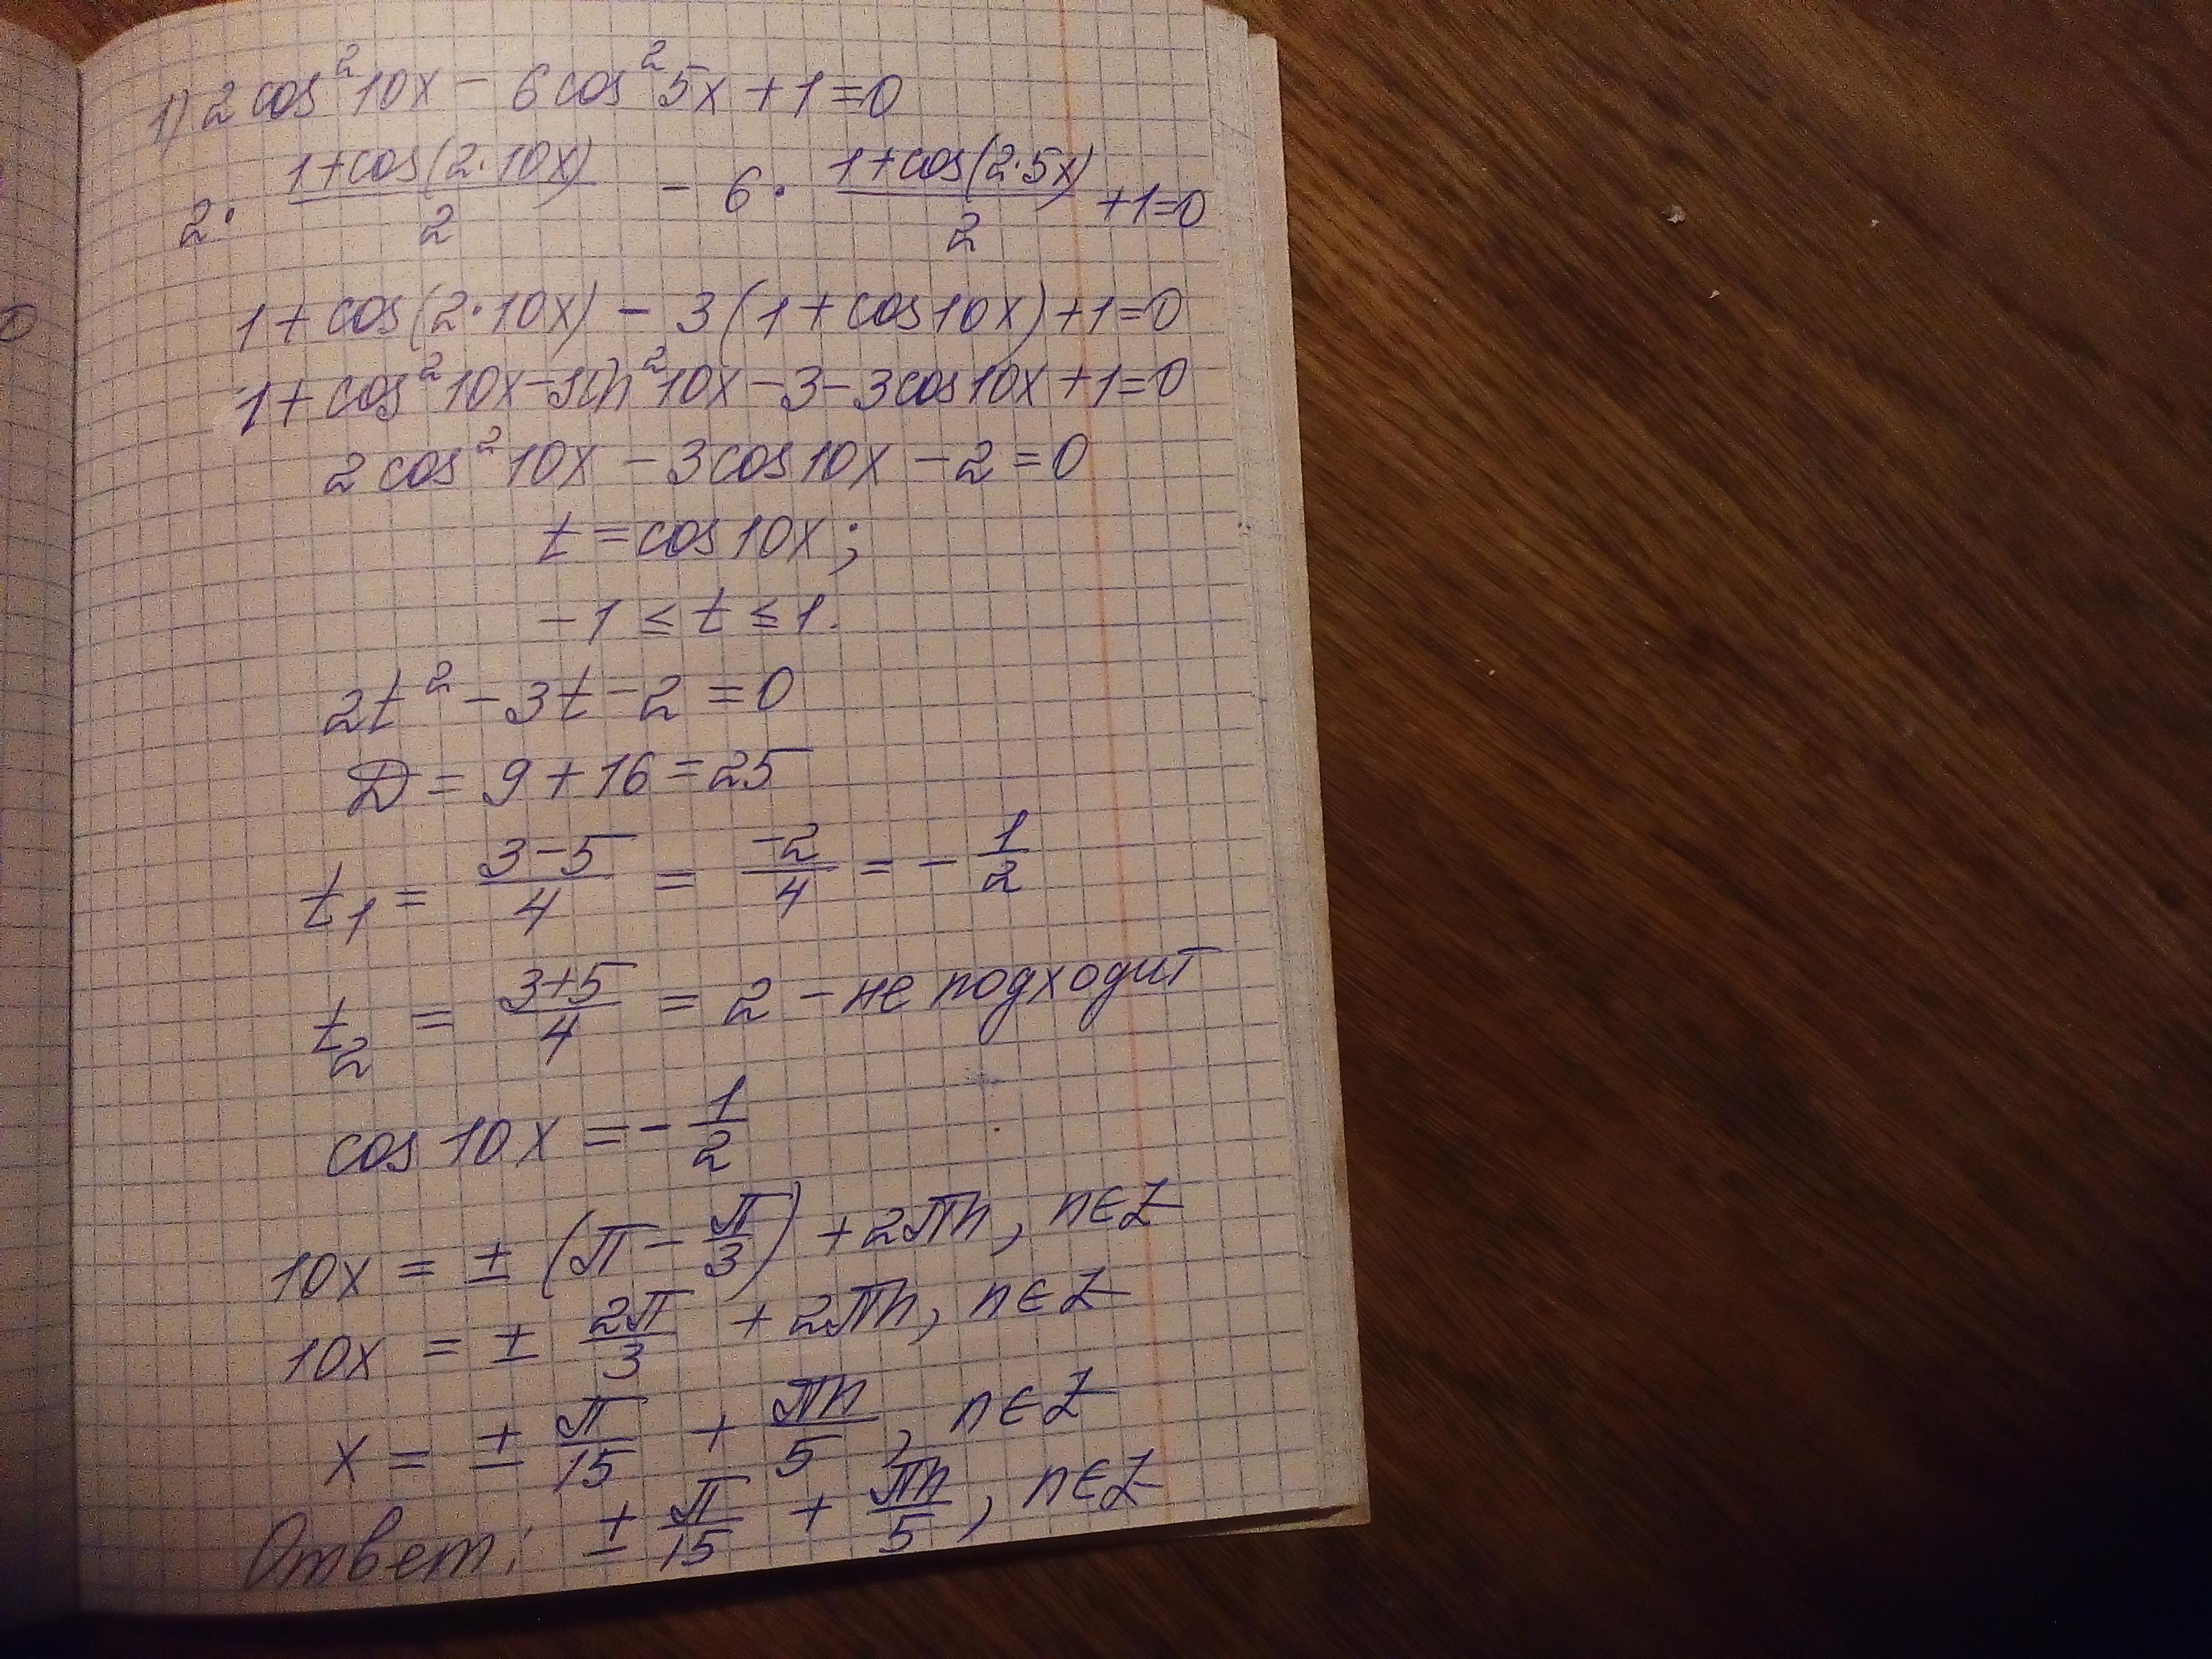 1) 2 cos²10x − 6 cos²5x + 1 = 0
2 · (1+cos(2·10x))/2 − 6 · (1+cos(2·5x))/2 + 1 = 0
1 + cos(2·10x) − 3(1 + cos10x) + 1 = 0
1 + cos²10x − sin²10x − 3 − 3cos10x + 1 = 0
2 cos²10x − 3cos10x − 2 = 0
t = cos10x;
−1 ≤ t ≤ 1.
2t² − 3t − 2 = 0
D = 9 + 16 = 25
t₁ = (3−5)/4 = −2/4 = −1/2
t₂ = (3+5)/4 = 2 − не подходит
cos10x = −1/2
10x = ± (π − π/3) + 2πn, n∈Z
10x = ± 2π/3 + 2πn, n∈Z
x = ± π/15 + πn/5, n∈Z
Ответ: ± π/15 + πn/5, n∈Z